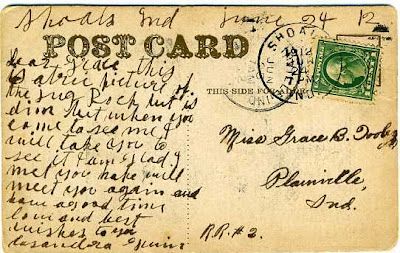 Shoals Ind June 24 12
POST CARD
THIS SIDE FOR
SHOALS
JUN
IND
Dear Grace this
is a true picture of
the Jug Rock but is
dim but when you
come to see me I
will take you to
see it I am glad I
met you hope will
meet you again and
have a good time
love and best
wishes to you
Casandra
Miss Grace B.
Plainville,
Ind.
R.R.#2.